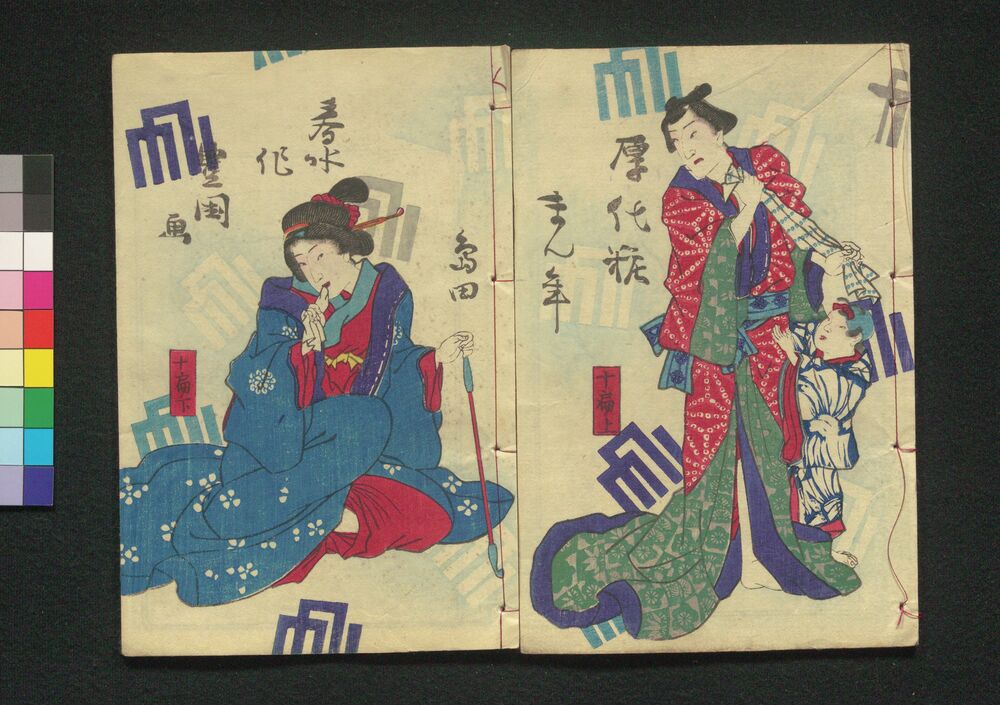 厚化粧
万年
島田
十編上
春水
作
豊国
画
十編下